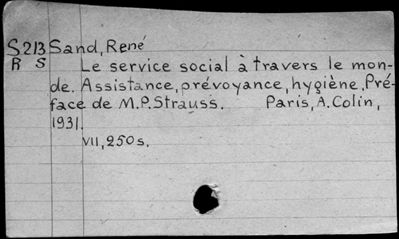 S213 Sand, René
R S Le service social à travers le mon-
de. Assistance, prévoyance, hygiène. Pré-
face de M.P.Strauss. Paris, A.Colin,
1931.
VII, 250 s.